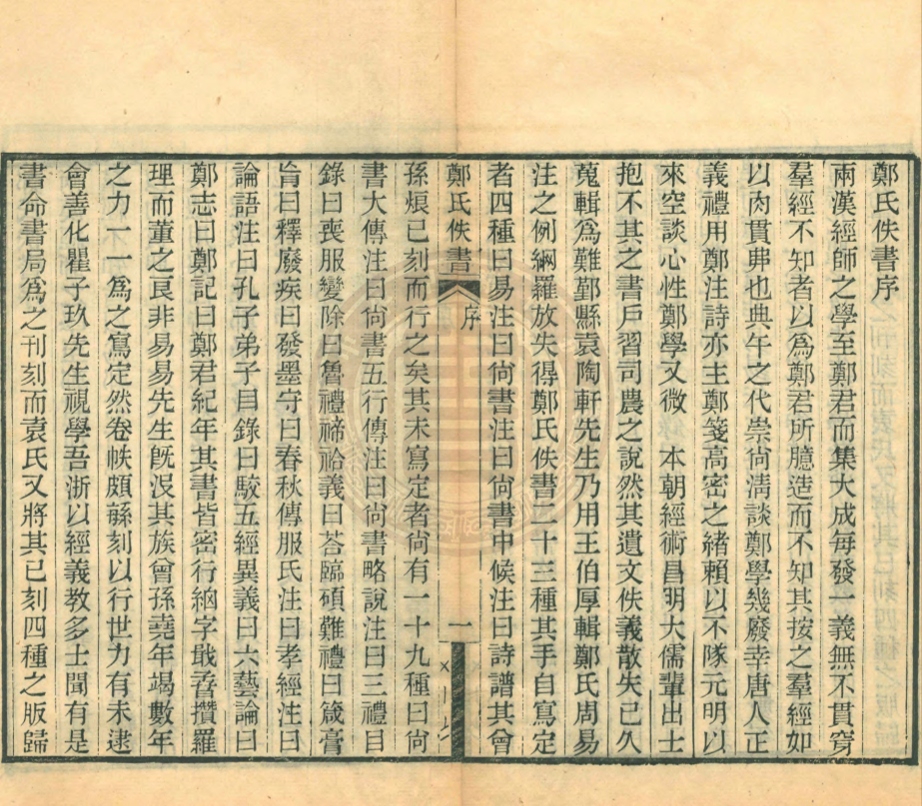 鄭氏佚書序
兩漢經師之學至鄭君而集大成每發一義無不貫穿
羣經不知者以爲鄭君所臆造而不知其按之羣經如
以肉貫弗也典午之代崇尙淸談鄭學幾廢幸唐人正
義禮用鄭注詩亦主鄭箋高密之緒賴以不隊元明以
來空談心性鄭學又微　本朝經術昌明大儒輩出士
抱不其之書戸習司農之說然其遺文佚義散失已久
蒐輯爲難鄞縣袁陶軒先生乃用王伯厚輯鄭氏周易
注之例網羅放失得鄭氏佚書二十三種其手自寫定
者四種曰易注曰尙書注曰尙書中候注曰詩譜其曾
鄭氏佚書　序　一
孫烺已刻而行之矣其未寫定者尙有一十九種曰尙
書大傳注曰尙書五行傳注曰尙書略說注曰三禮目
錄曰喪服變除曰魯禮禘祫義曰荅臨碩難禮曰箴膏
肓曰釋廢疾曰發墨守曰春秋傳服氏注曰孝經注曰
論語注曰孔子弟子目錄曰駮五經異義曰六藝論曰
鄭志曰鄭記曰鄭君紀年其書皆密行細字戢香攢羅
理而董之良非易易先生旣沒其族曾孫堯年竭數年
之力一一爲之寫定然卷帙頗緐刻以行世力有未逮
會善化瞿子玖先生視學吾浙以經義教多士聞有是
書命書局爲之刊刻而袁氏又將其已刻四種之版歸